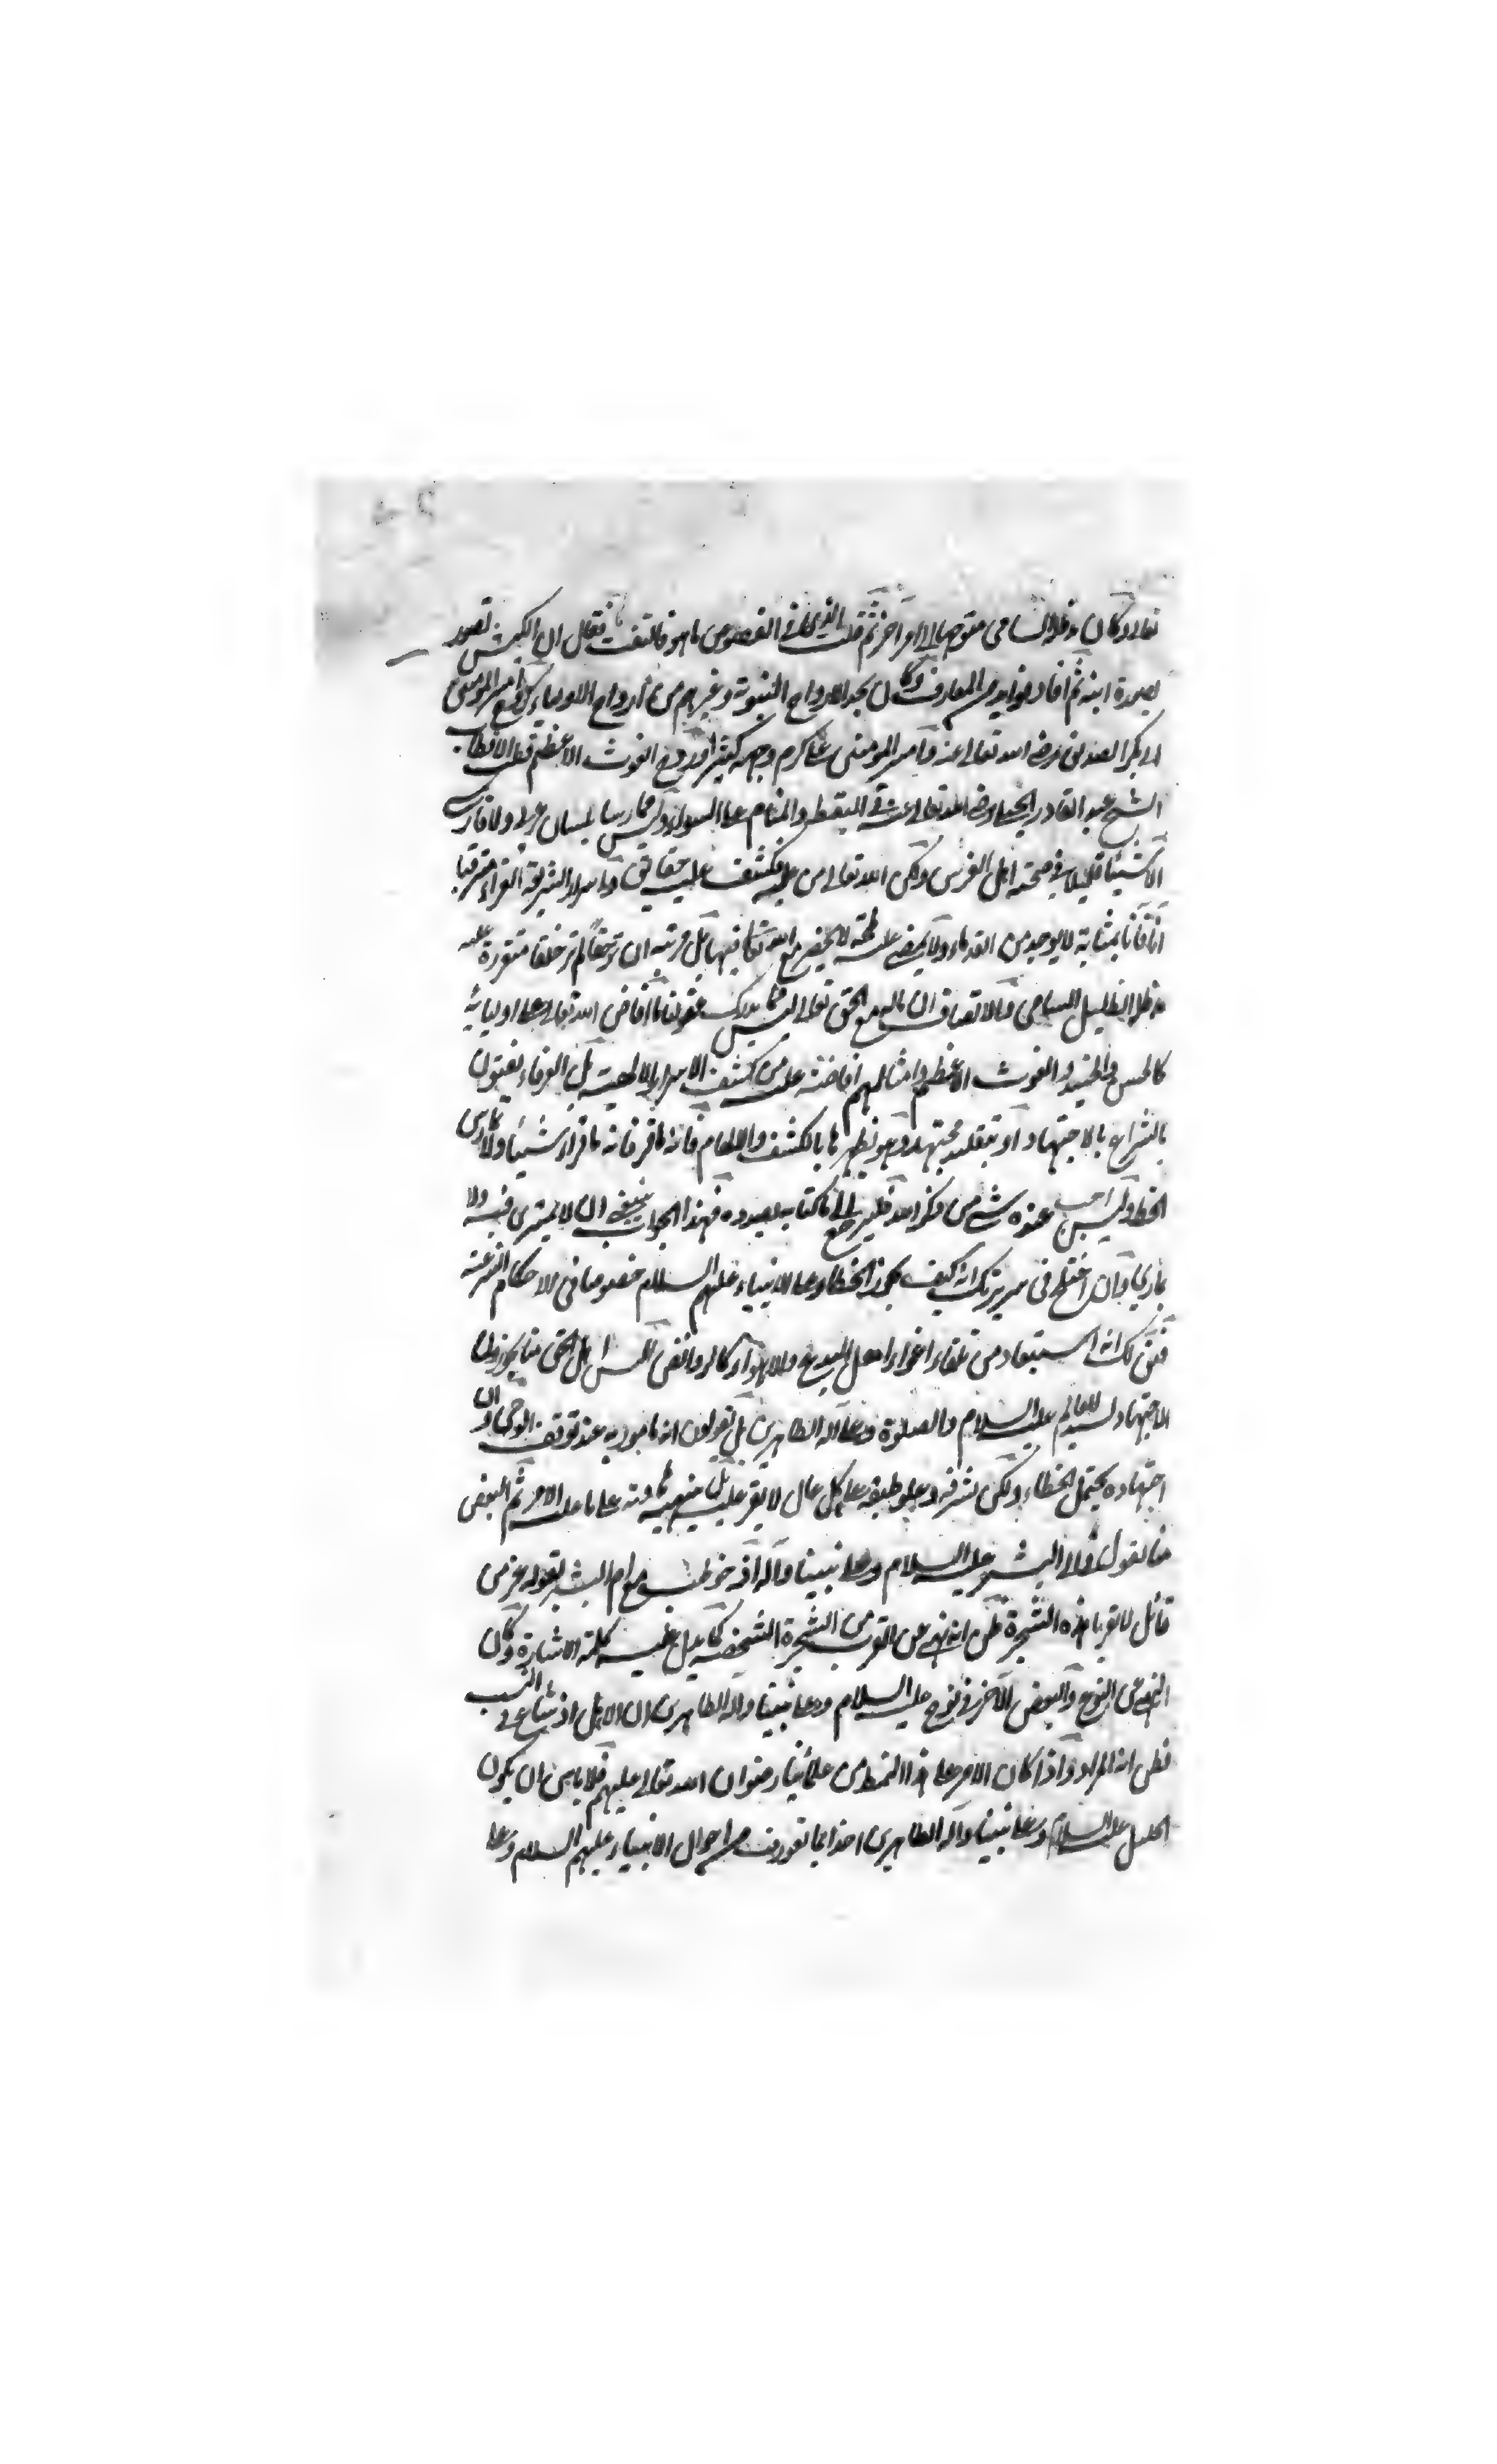 تعالى وكان مد ظله السامي متوجها الى امر آخر ثم قلت الذي في الفصوص ما هو فالتفت فقال ان الكبش تصور
بصورة ابنه ثم افاد فوايد من المعارف وكان يجد الارواح النبوية وغيرهم من ارواح الاولياء امير المومنين
ابي بكر الصديق رضي الله تعالى عنه وامير المومنين علي كرم وجهه كثيرا وروح الغوث الاعظم قطب الاقطاب
الشيخ عبد القادر الجيلي رضي الله تعالى عنه في اليقظة والمنام على السواء وليس ممارسا بلسان عربي ولا فارسي
الا شيئا قليلا في صحبة اهل الفرس ولكن الله تعالى من عليه فكشف عليه حقايق واسرار الشريعة الغراء مترقيا
آنا فآنا بمثابة لا يوجد من القدماء ولا يمضي عليه لمحة لا يحضر مع الله تعالى فيها بل مرتبة ان ترى حقا لم تر خلقا متقررة عليه
مد ظله الظليل السامي والاتصاف ان ماله مع الحق تعالى ليس مما يدرك عقولنا ما افاض الله تعالى على اوليائه
كالحسن والجنيد والغوث الاعظم وامثالهم افاضة عليه من كشف الاسرار الالهية بل العرفاء يفتون
بالشرايع بالاجتهاد او بتقليد مجتهد وهو يظهرها بالكشف والالهام فانه ما قرء شيئا ولا مارس
الخط وليس احب عنده شيء من ذكر الله فليرجع الى ما كنا بصدده فهذا الجواب ينبغي ان لا يمترى فيه ولا
يمارى وان اختلج في سريرتك انه كيف يجوز الخطاء على الانبياء عليهم السلام خصوصا في الاحكام الشرعية
فقل لك انه استبعاد من تلقاء اغواء اهل البدع والاهواء كالروافض اليس اهل الحق منا يجوزون
الاجتهاد لسيد العالم عليه السلام والصلوة وعلى آله الطاهرين بل يقولون انه مامور به عند توقف الوحي وان
اجتهاده يحتمل الخطاء ولكن لشرفه وعلو طبقه على كل حال لا يقر عليه بل ينبهه على ما عليه الامر ثم البعض
منا يقول في ابي البشر عليه السلام وعلى نبينا وآله اذ خوطب مع ام البشر بقوله عز من
قائل لا تقربا هذه الشجرة ظن انه نهي عن القرب من الشجرة الشخصية كما يدل عليه كلمة الاشارة وكان
النهي عن النوع والبعض الآخر في نوح عليه السلام وعلى نبينا وآله الطاهرين ان الاهل اذ شاع في النسب
فظن انه المراد واذا كان الامر على هذا النمط من علمائنا رضوان الله تعالى عليهم فلا باس ان يكون
الخليل عليه السلام وعلى نبينا وآله الطاهرين اخذا بما تعورف من احوال الانبياء عليهم السلام وعلى